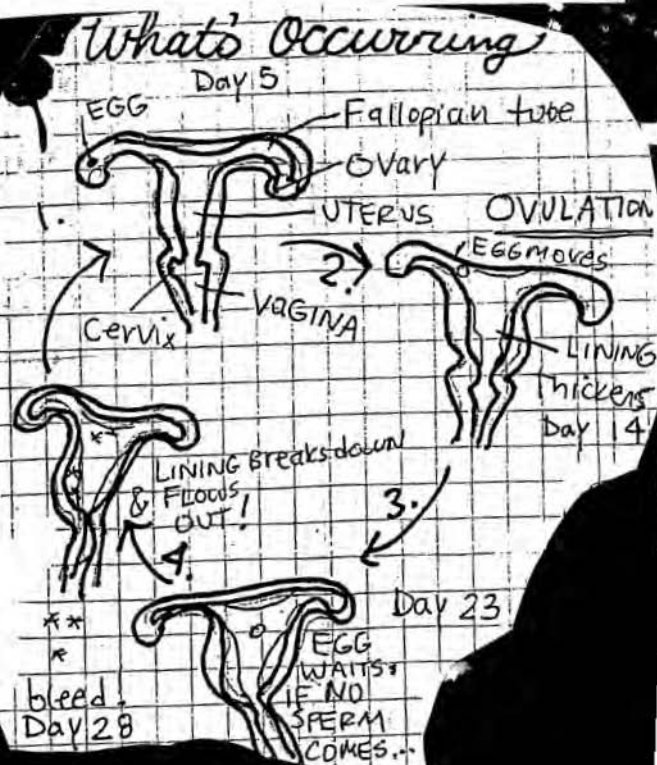 What's Occurring
Day 5
EGG
Fallopian tube
Ovary
UTERUS
VAGINA
Cervix
1.
2.
OVULATION
EGG MOVES
LINING
thickens
Day 14
3.
Day 23
EGG
WAITS.
IF NO
SPERM
COMES...
4.
LINING Breaks down
& FLOWS
OUT!
**
*
bleed.
Day 28